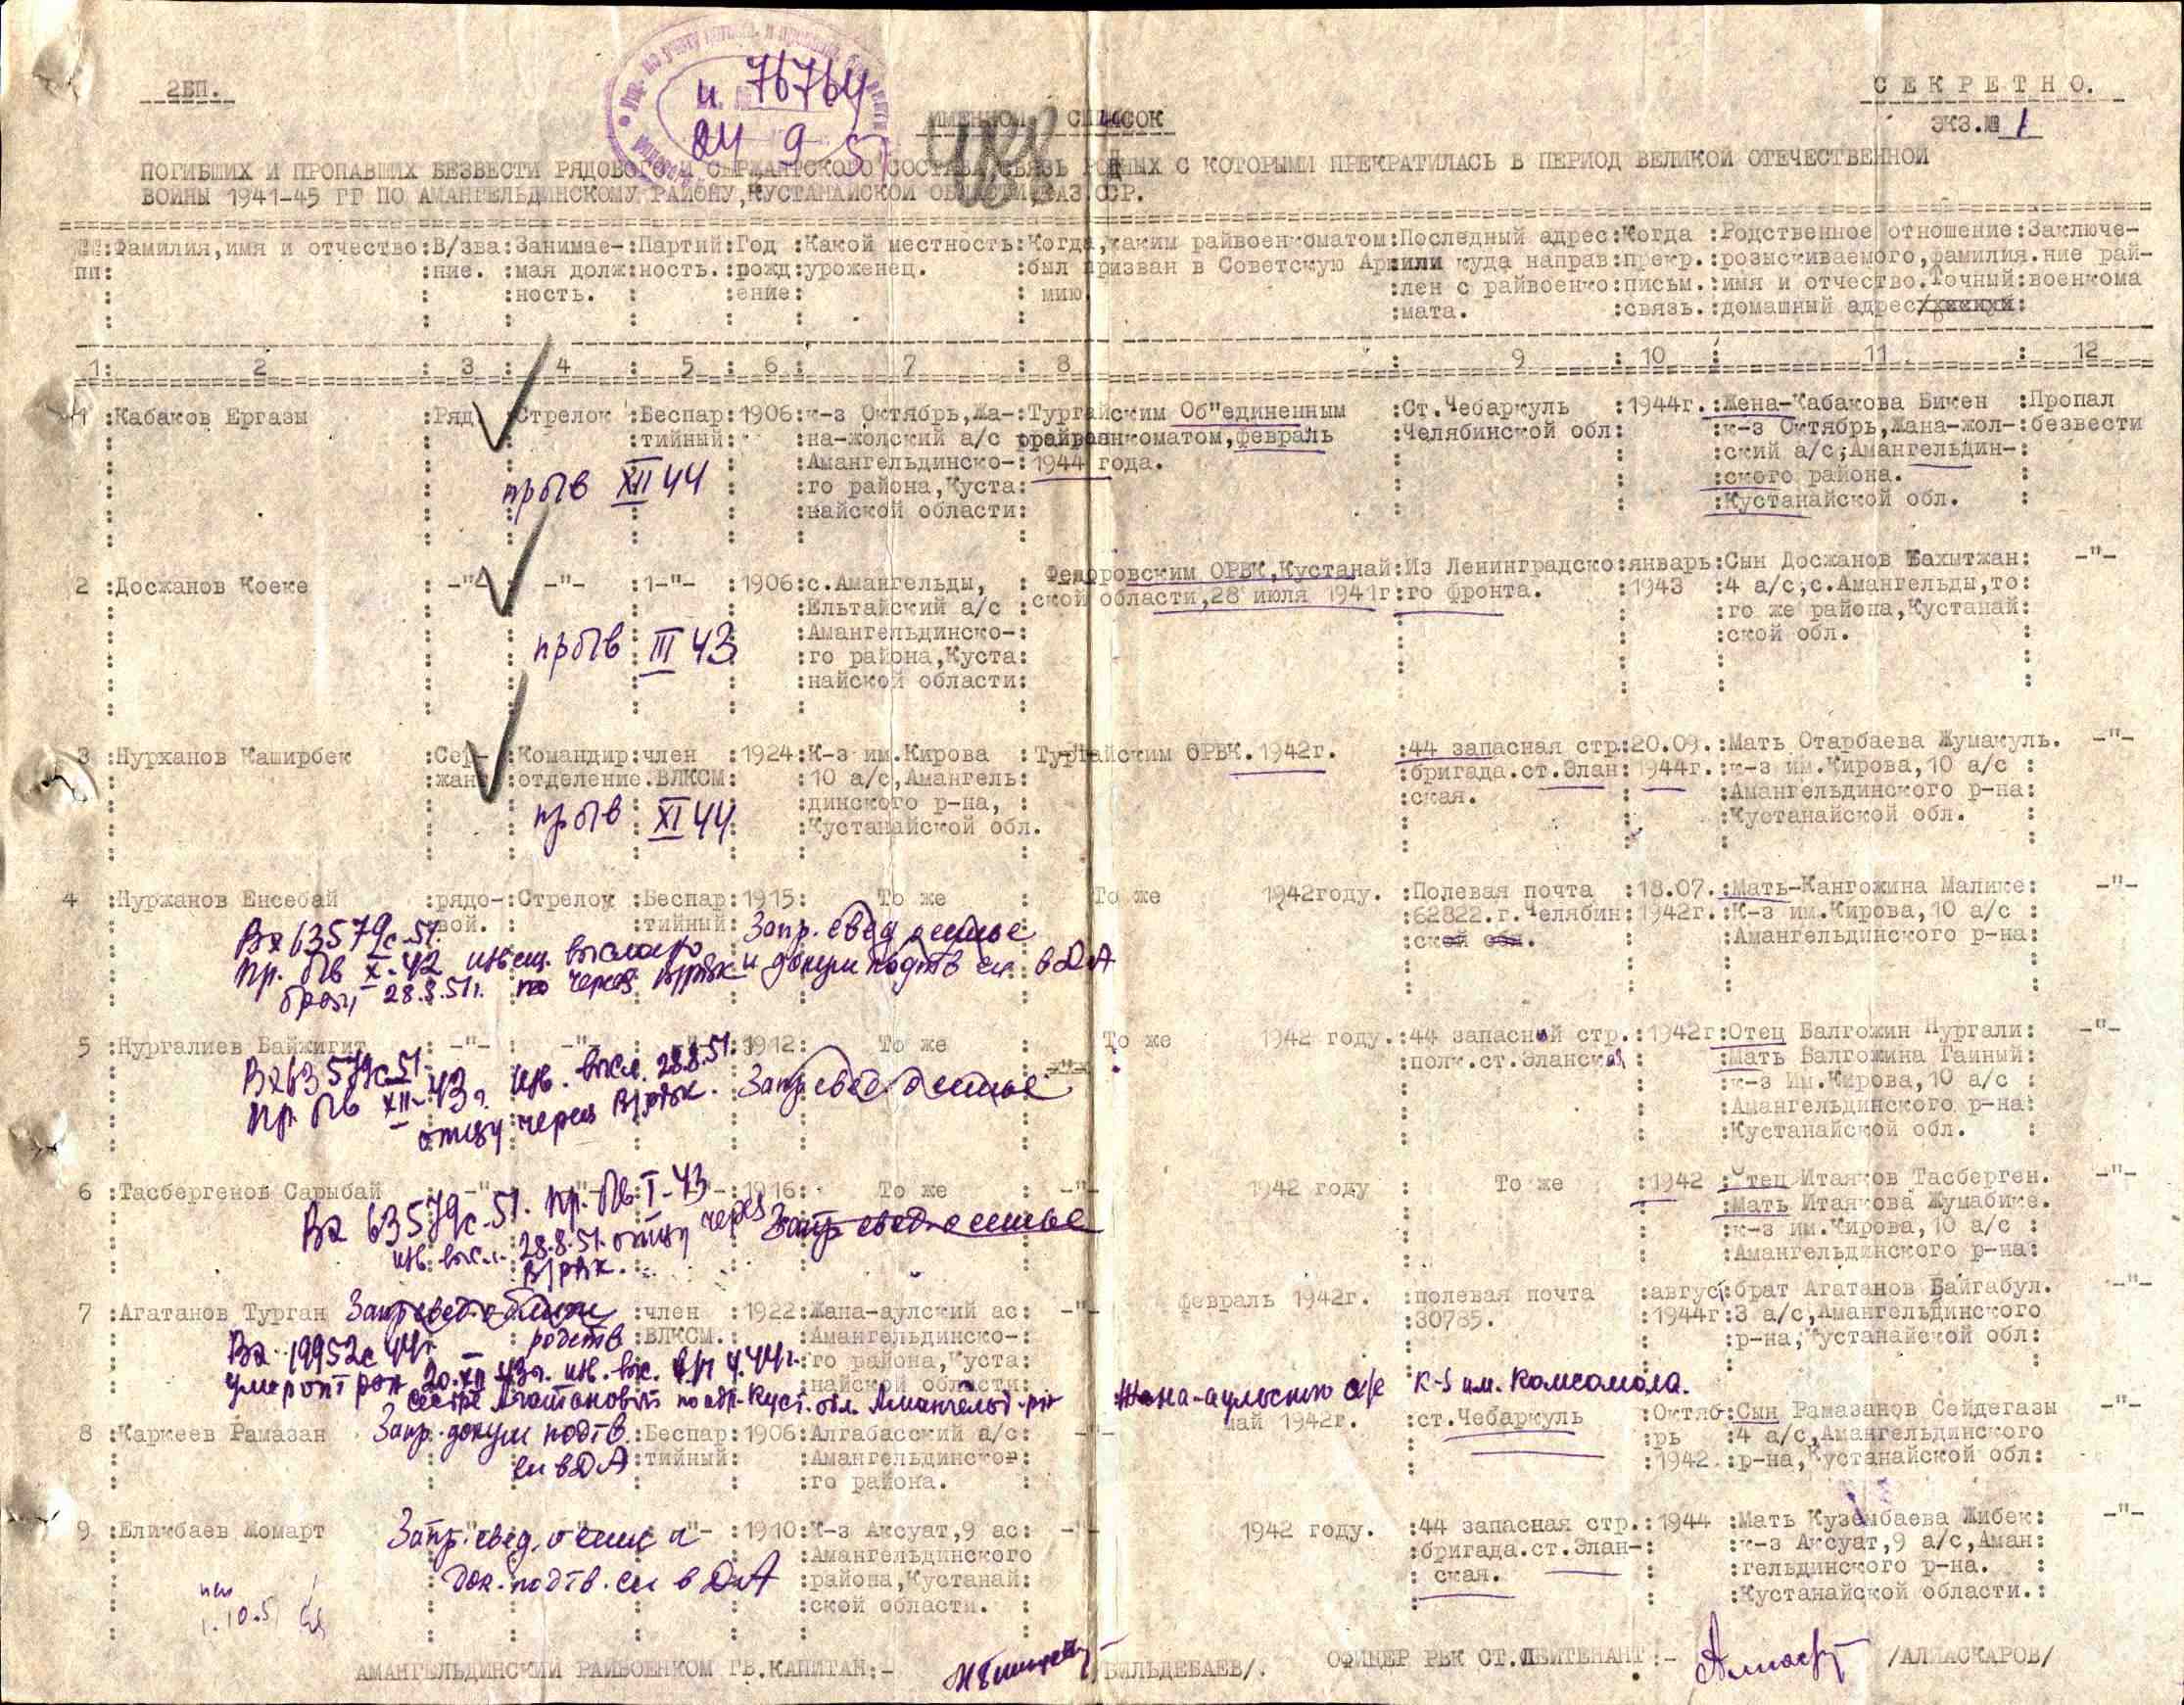 2БП.
СЕКРЕТНО.
ЭКЗ.№ 1
и. 76764
24 9 51
ИМЕННОЙ СПИСОК
ПОГИБШИХ И ПРОПАВШИХ БЕЗВЕСТИ РЯДОВОГО И СЕРЖАНТСКОГО СОСТАВА, СВЯЗЬ РОДНЫХ С КОТОРЫМИ ПРЕКРАТИЛАСЬ В ПЕРИОД ВЕЛИКОЙ ОТЕЧЕСТВЕННОЙ
ВОЙНЫ 1941-45 ГГ ПО АМАНГЕЛЬДИНСКОМУ РАЙОНУ, КУСТАНАЙСКОЙ ОБЛАСТИ, КАЗ.ССР.
№№:Фамилия,имя и отчество:В/зва:Занимае-:Партий:Год :Какой местность:Когда,каким райвоенкоматом:Последный адрес:Когда :Родственное отношение:Заключе-
пп: :ние. :мая долж:ность. :рожд:уроженец. :был призван в Советскую Ар :или куда направ:прекр.:розыскиваемого,фамилия.ние рай-
:ность. : :ение: : мию :лен с райвоенко:письм.:имя и отчество.Точный:военкома
:мата. :связь.:домашный адрес
1: 2 : 3 : 4 : 5 : 6 : 7 : 8 : 9 : 10 : 11 : 12
1 :Кабаков Ергазы :Ряд. :Стрелок :Беспар:1906:к-з Октябрь,Жа-:Тургайским Об"единенным :Ст.Чебаркуль :1944г.:Жена-Кабакова Бикен :Пропал
:тийный: :на-жолский а/с райвоенкоматом,февраль :Челябинской обл: :к-з Октябрь,Жана-жол-:безвести
:Амангельдинско-:1944 года. :ский а/с,Амангельдин-:
прбПв XII 44 :го района,Куста: :ского района. :
:найской области: :Кустанайской обл. :
2 :Досжанов Коеке -"- -"- :1-"- :1906:с.Амангельды, : Федоровским ОРВК,Кустанай:Из Ленинградско:январь:Сын Досжанов Бахытжан: -"-
:Ельтайский а/с :ской области,28 июля 1941г:го фронта. :1943 :4 а/с,с.Амангельды,то:
:Амангельдинско-: :го же района,Кустанай:
прбПв III 43 :го района,Куста: :ской обл. :
:найской области:
3 :Нурханов Каширбек :Сер- :Командир:член :1924:К-з им.Кирова :Тургайским ОРВК.1942г. :44 запасная стр:20.09.:Мать Отарбаева Жумакуль. -"-
:жант :отделение.ВЛКСМ: :10 а/с,Амангель: :бригада.ст.Элан:1944г.:к-з им.Кирова,10 а/с :
:динского р-на, : :ская. :Амангельдинского р-на:
прбПв XI 44 :Кустанайской обл. :Кустанайской обл. :
4 :Нуржанов Енсебай :рядо-:Стрелок :Беспар:1915: То же : То же 1942году. :Полевая почта :18.07.:Мать-Кангожина Малике: -"-
:вой. :тийный: :62822.г.Челябин:1942г.:К-з им.Кирова,10 а/с :
:ской обл. :Амангельдинского р-на:
Вх 63579с-51. Запр. свед о семье
пр. Пв X-42 извещ. выслано и докум подтв сл. в ДА
28.8.51г. через В/рвк
5 :Нургалиев Байжигит : -"- : -"- 1912: То же То же 1942 году.:44 запасной стр.:1942г:Отец Балгожин Нургали: -"-
:полк.ст.Эланская :Мать Балгожина Гайный:
:к-з им.Кирова,10 а/с :
:Амангельдинского р-на:
:Кустанайской обл. :
Вх 63579с-51. изв. высл. 28.8.51.
пр. Пв XII-43г. отцу через В/рвк. Запр свед о семье
6 :Тасбергенов Сарыбай -"- -"- :1916: То же : -"- 1942 году : То же :1942 :Отец Итаяков Тасберген. -"-
:Мать Итаякова Жумабике.
:к-з им.Кирова,10 а/с :
:Амангельдинского р-на:
Вх 63579с-51. пр. Пв I-43
изв. высл. 28.8.51. отцу через В/рвк. Запр свед о семье
7 :Агатанов Турган :член :1922:Жана-аулский ас: -"- февраль 1942г. :полевая почта :август:брат Агатанов Байгабул. -"-
:ВЛКСМ.: :Амангельдинско-: :30785. :1944г:3 а/с,Амангельдинского
:го района,Куста: :р-на,Кустанайской обл:
:найской области:
Запр свед о близк родств
Вх. 19952с 44г
умер от ран 20.XII 43г. изв. выс.
сестре Агатановой по адр. Куст. обл. Амангельд. р-н Жана-аульского а/с к-з им. Комсомола.
8 :Каркеев Рамазан :Беспар:1906:Алгабасский а/с: -"- май 1942г. :ст.Чебаркуль :Октяб:Сын Рамазанов Сейдегазы -"-
:тийный: :Амангельдинско: :рь :4 а/с,Амангельдинского
:го района. :1942 :р-на,Кустанайской обл:
Запр. докум подтв.
сл в ДА
9 :Еликбаев Жомарт -"- :1910:К-з Аксуат,9 ас: -"- 1942 году. :44 запасная стр.:1944 :Мать Кузембаева Жибек: -"-
:Амангельдинского :бригада.ст.Элан-: :к-з Аксуат,9 а/с,Аман:
:района,Кустанай: : ская. :гельдинского р-на. :
:ской области. : :Кустанайской области.:
Запр. свед. о семье и
док. подтв. сл в ДА
1.10.51
АМАНГЕЛЬДИНСКИЙ РАЙВОЕНКОМ ГВ.КАПИТАН:- /БИЛЬДЕБАЕВ/. ОФИЦЕР РВК СТ.ЛЕЙТЕНАНТ:- /АЛПАСКАРОВ/